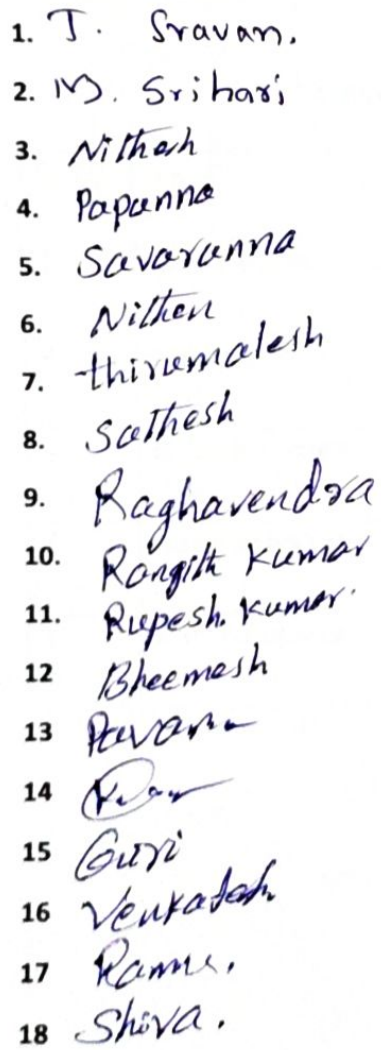 1. J. Sravan.
2. M. Srihari
3. Nithesh
4. Papanna
5. Savaranna
6. Nithen
7. thirumalesh
8. Sathesh
9. Raghavendra
10. Rangith kumar
11. Rupesh. kumar.
12 Bheemesh
13 Pavan
14
15 Guri
16 Venkatesh
17
18 Shiva.